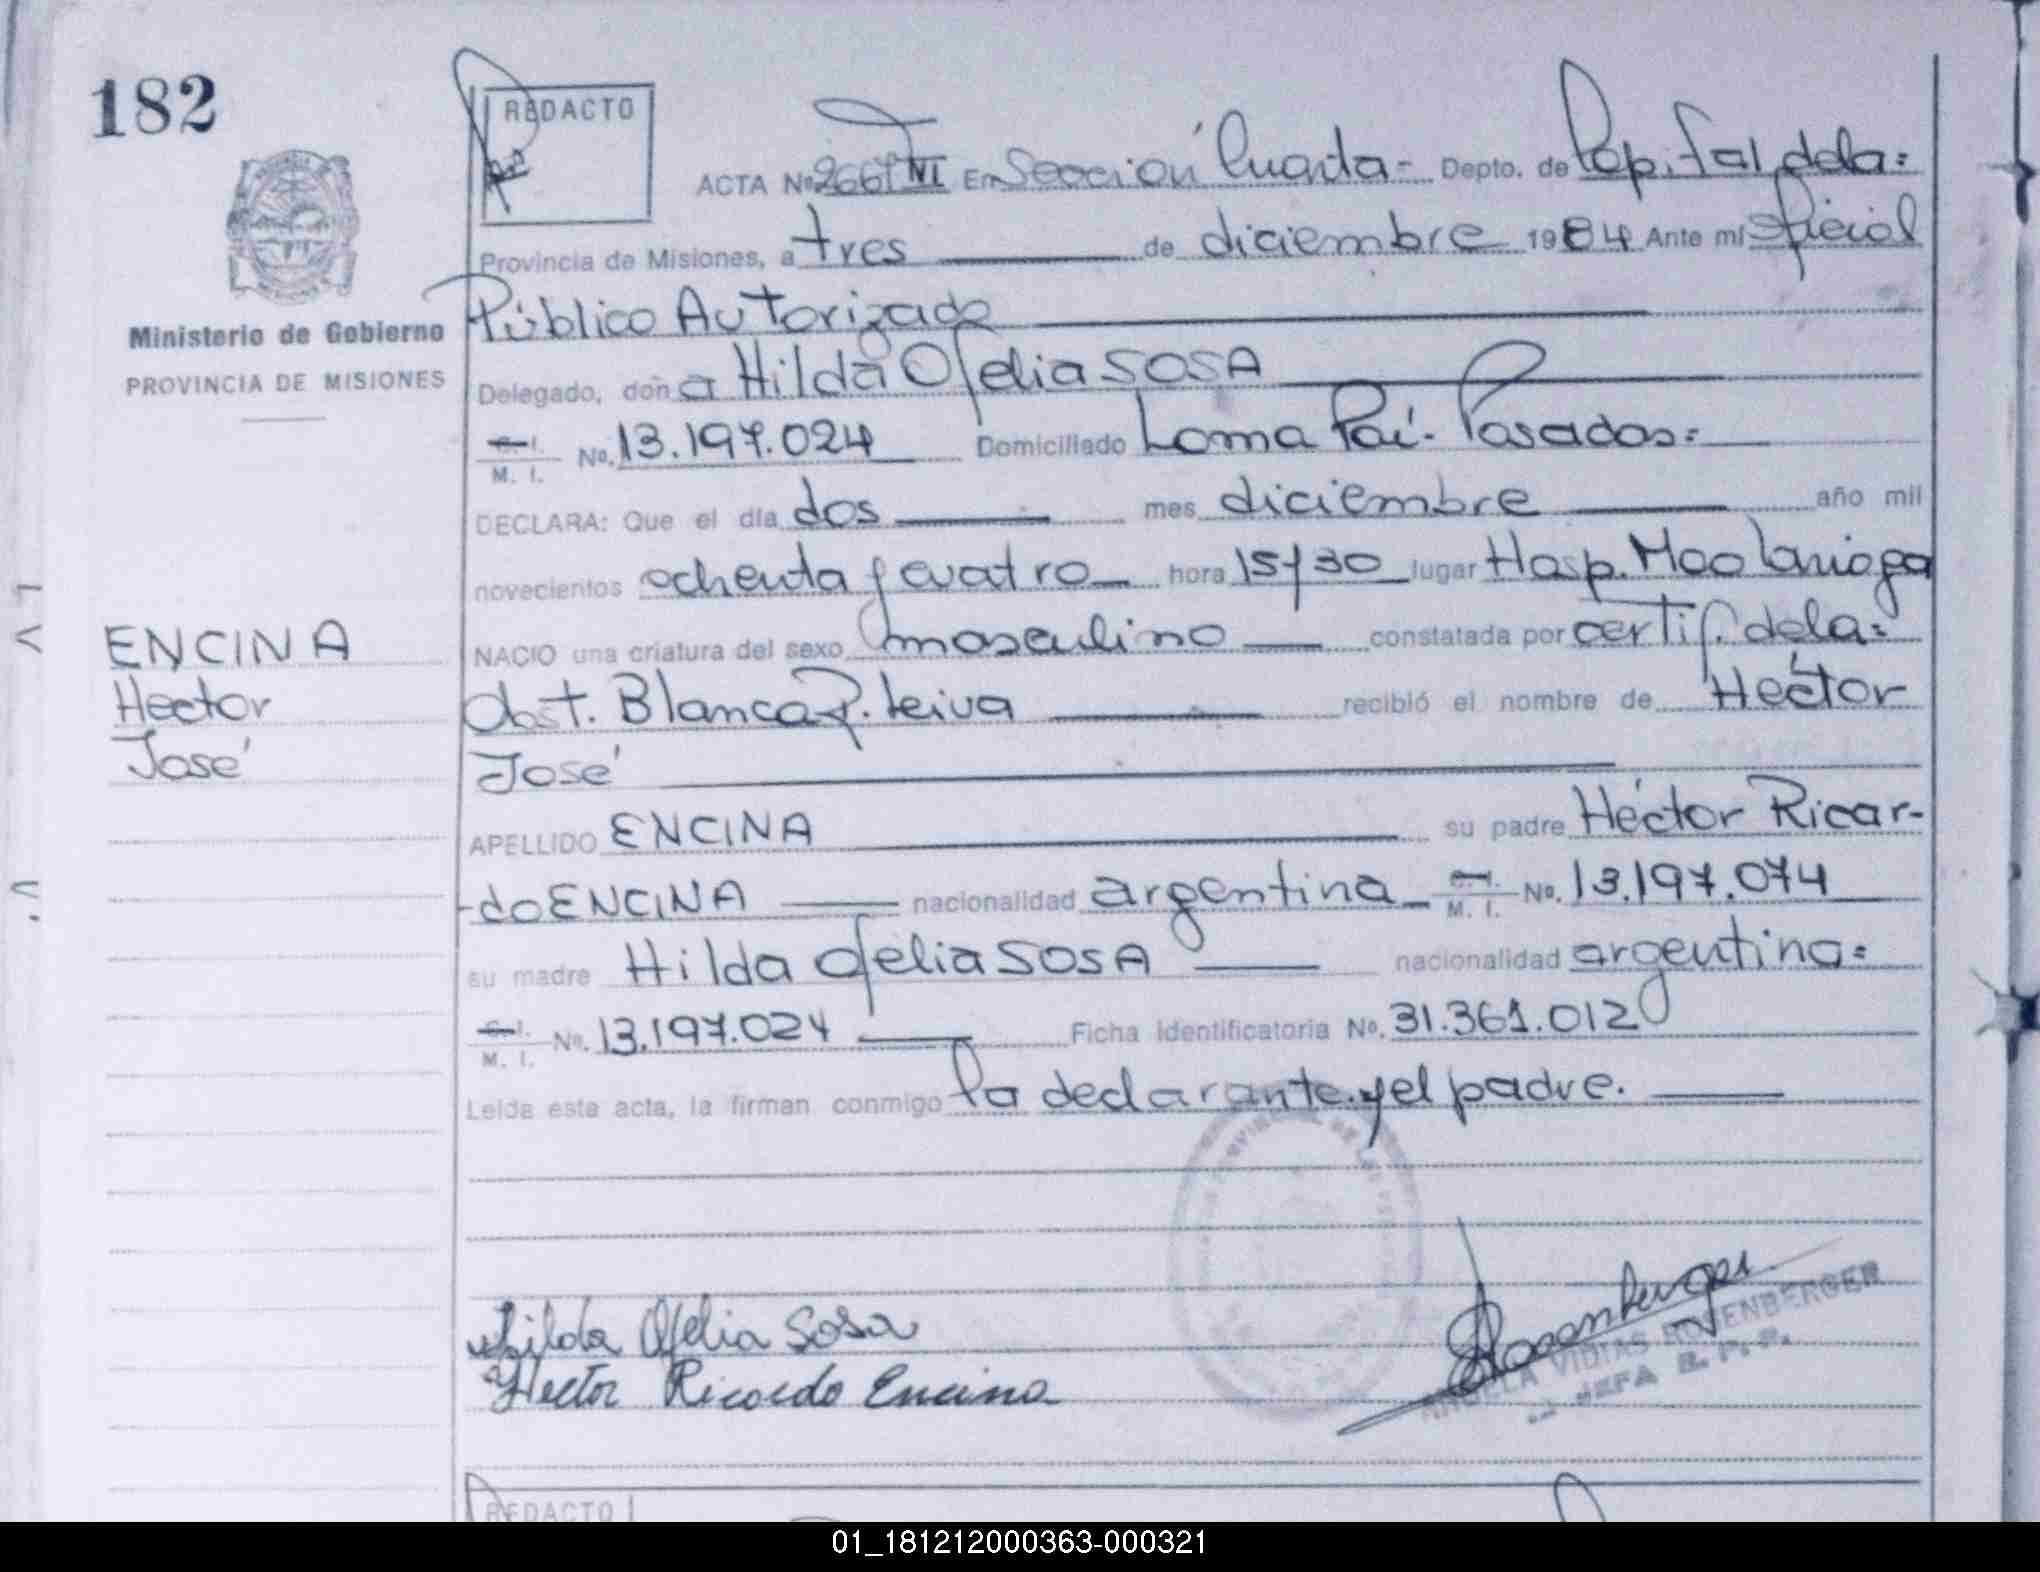 182
REDACTO
ACTA Nº 2667 T VI En Sección Cuarta= Depto. de Capital dela=
Provincia de Misiones, a tres de diciembre 1984 Ante mí Oficial
Público Autorizado
Ministerio de Gobierno
PROVINCIA DE MISIONES
Delegado, doñ a Hilda Ofelia SOSA
C. I.
M. I. Nº. 13.197.024 Domiciliado Loma Paí. Posadas=
DECLARA: Que el día dos mes diciembre año mil
novecientos ochenta y cuatro hora 15/30 lugar Hosp. Mad
NACIO una criatura del sexo masculino constatada por certif. dela=
obst. Blanca R. Leiva recibió el nombre de Héctor
José
ENCINA
Hector
José
APELLIDO ENCINA su padre Héctor Ricar-
-do ENCINA nacionalidad argentina C. I. M. I. Nº. 13.197.074
su madre Hilda Ofelia SOSA nacionalidad argentina=
C. I. M. I. Nº. 13.197.024 Ficha Identificatoria Nº. 31.361.012
Leída esta acta, la firman conmigo la declarante.y el padre.
Hilda Ofelia Sosa
Hector Ricardo Encina
Rosenberger
VIDIAS ROSENBERGER
JEFA R. P. P.
REDACTO
01_181212000363-000321